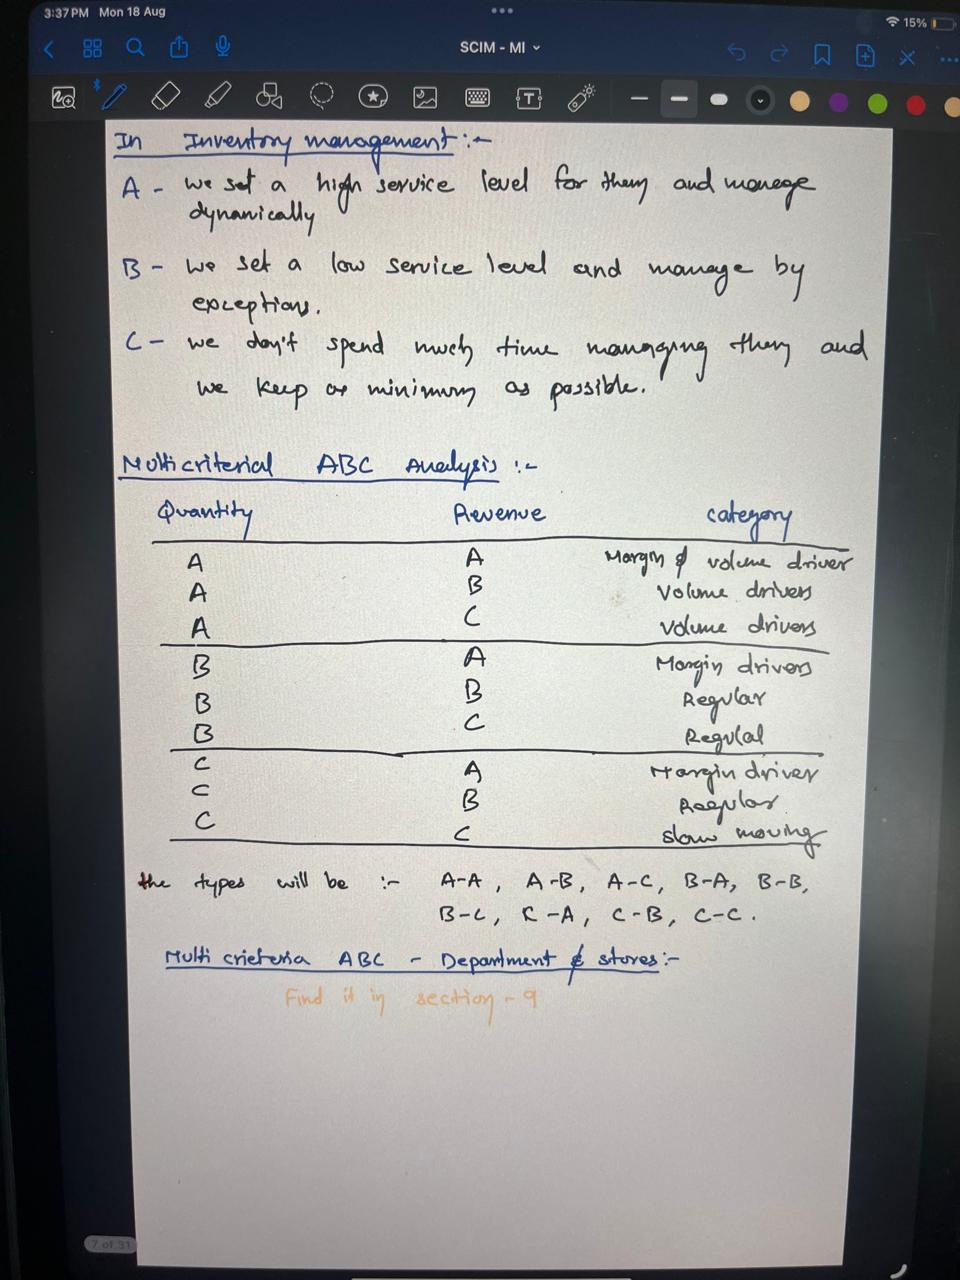 3:37 PM Mon 18 Aug
15%
SCIM - MI
In Inventory management :-
A - we set a high service level for them and manage
dynamically
B - we set a low service level and manage by
exceptions.
C - we don't spend much time managing them and
we keep as minimum as possible.
Multicriterial ABC Analysis :-
Quantity Revenue Category
A A Margin & volume driver
A B Volume drivers
A C Volume drivers
B A Margin drivers
B B Regular
B C Regulal
C A Margin driver
C B Regular
C C slow moving
the types will be :- A-A, A-B, A-C, B-A, B-B,
B-C, C-A, C-B, C-C.
Multi crieteria ABC - Department & stores :-
Find it in section - 9
7 of 31